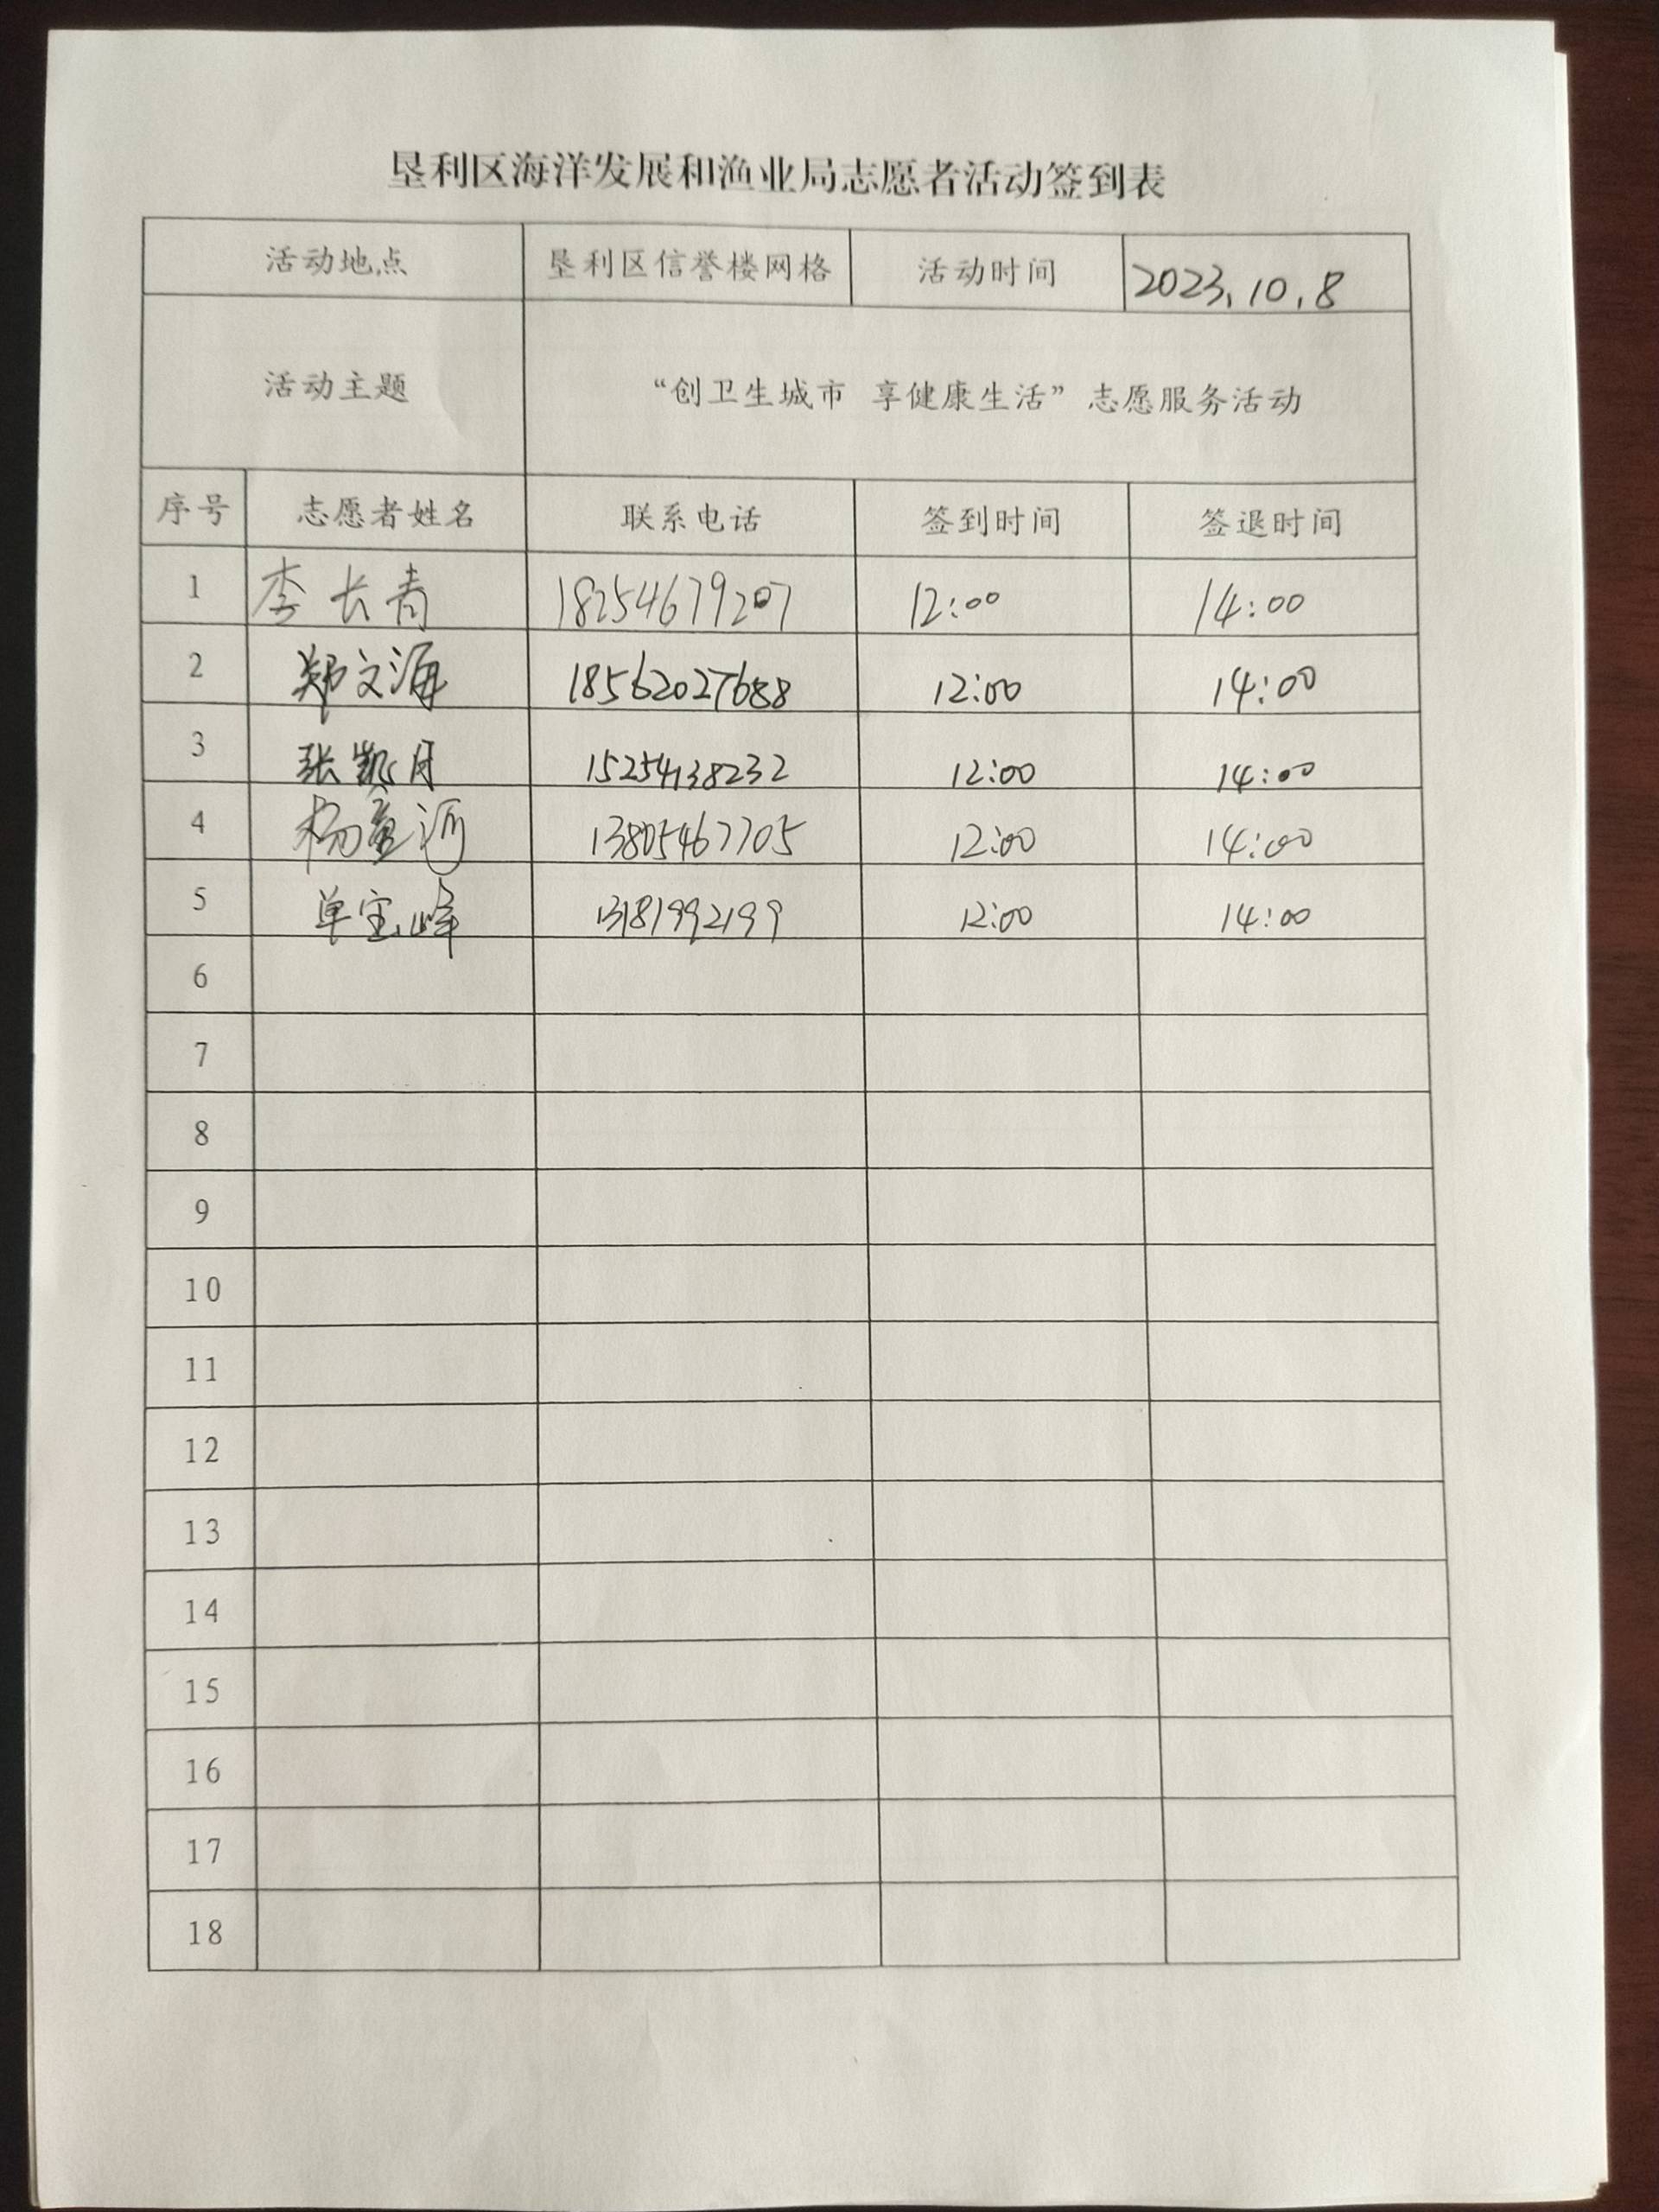 垦利区海洋发展和渔业局志愿者活动签到表
活动地点 垦利区信誉楼网格 活动时间 2023.10.8
活动主题 “创卫生城市 享健康生活”志愿服务活动
序号 志愿者姓名 联系电话 签到时间 签退时间
1 李长青 18254679207 12:00 14:00
2 郑文海 18562027688 12:00 14:00
3 张凯月 15254138232 12:00 14:00
4 杨童 13805467705 12:00 14:00
5 单宝峰 13181992199 12:00 14:00
6
7
8
9
10
11
12
13
14
15
16
17
18